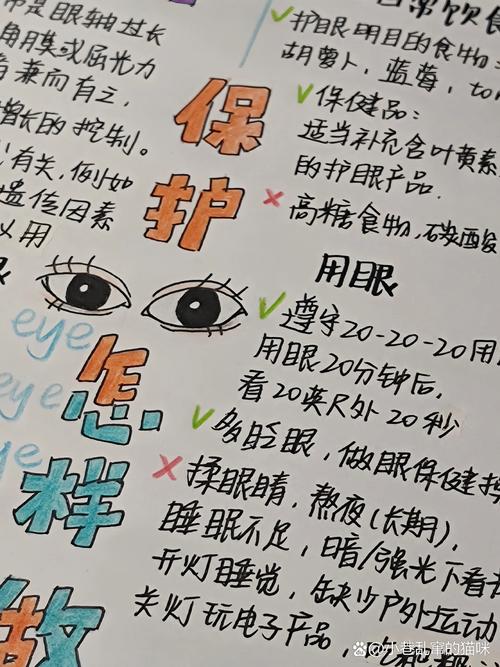 是眼轴过长
角膜或屈光力
兼而有之,
增长的控制。
有关,例如
遗传因素
用
保
护
eye
eye
eye
怎
样
做
饮食
✓护眼明目的食物:
胡萝卜, 蓝莓,
✓保健品:
适当补充含叶黄素
的护眼产品.
×高糖食物,碳酸
用眼
✓遵守20-20-20用
用眼20分钟后,
看20英尺外20秒
✓多眨眼, 做眼保健操
×揉眼睛, 熬夜(长期),
睡眠不足, 暗/强光下看
开灯睡觉, 缺少户外运动
关灯玩电子产品,
@小巷乱窜的猫咪